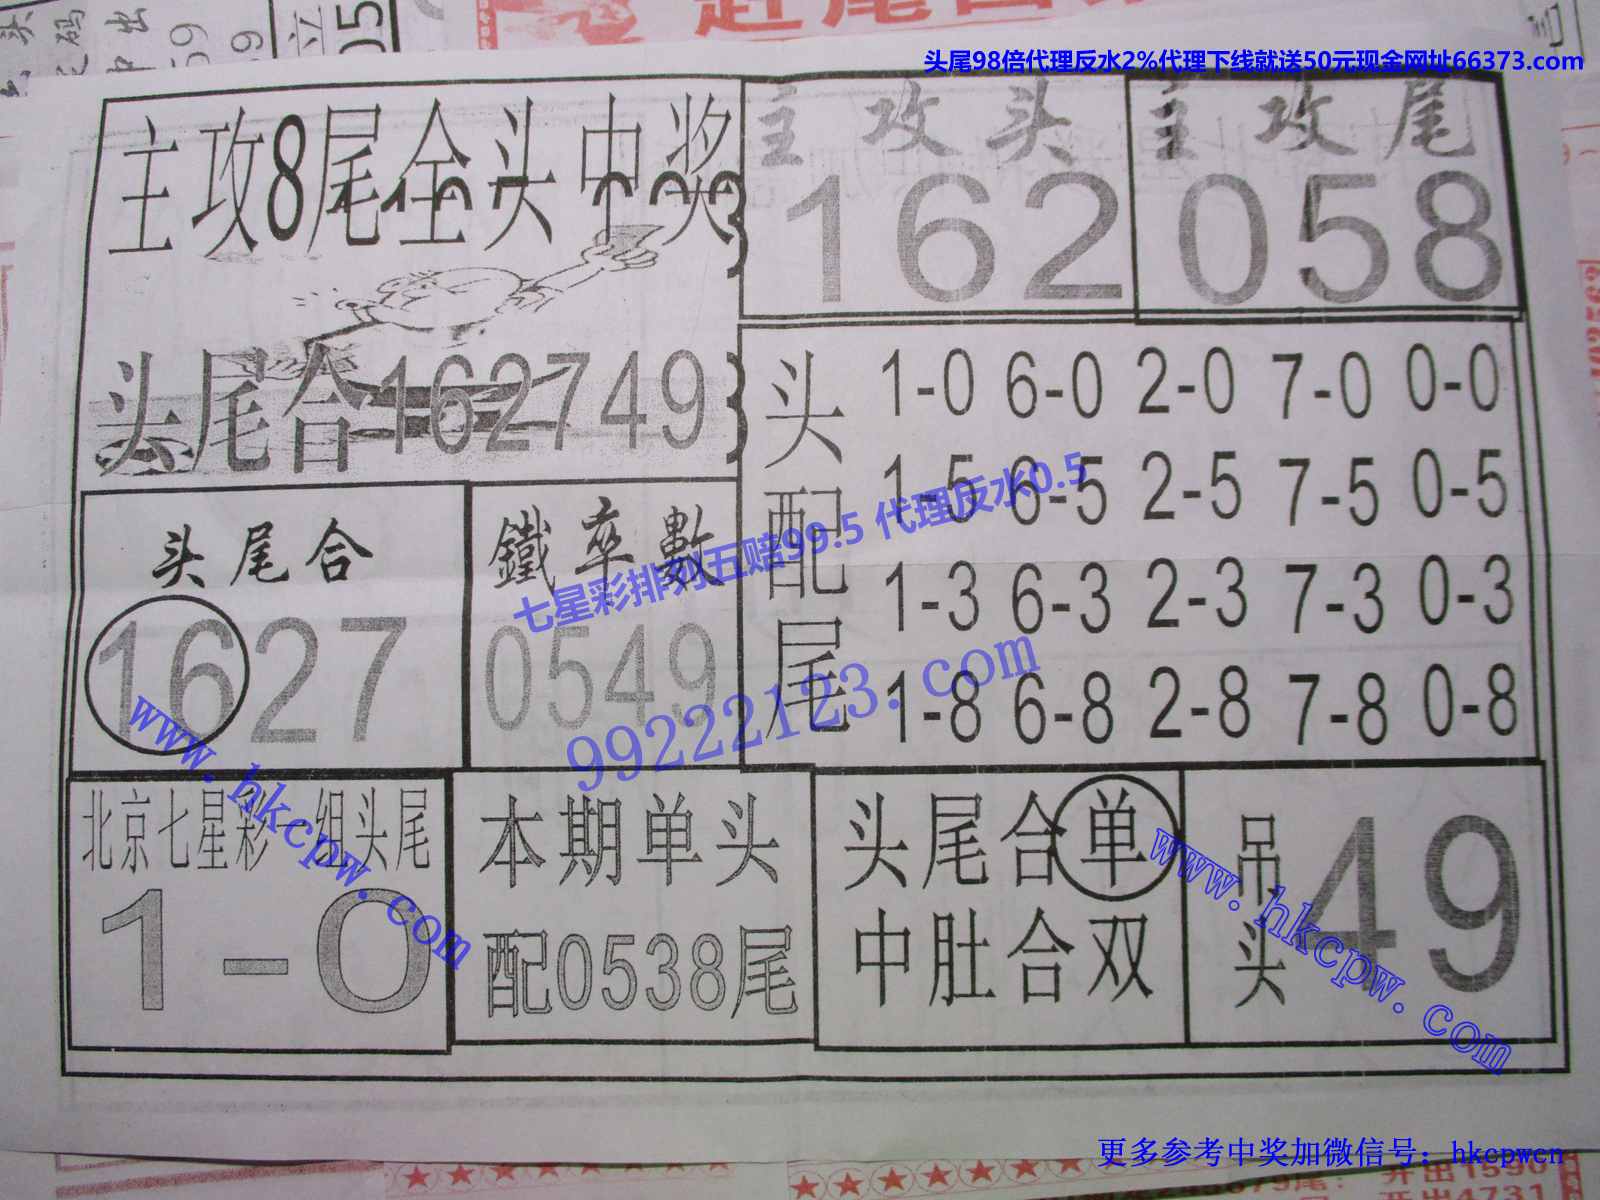 头尾98倍代理反水2%代理下线就送50元现金网址66373.com
主攻8尾全头中奖
头尾合162749
主攻头
162
主攻尾
058
头配尾
1-0 6-0 2-0 7-0 0-0
1-5 6-5 2-5 7-5 0-5
1-3 6-3 2-3 7-3 0-3
1-8 6-8 2-8 7-8 0-8
头尾合
1627
鐵卒數
0549
七星彩排列五赔99.5 代理反水0.5
99222123.com
www.hkcpw.com
北京七星彩一组头尾
1-0
本期单头
配0538尾
头尾合单
中肚合双
吊头
49
www.hkcpw.com
更多参考中奖加微信号：hkcpwcn